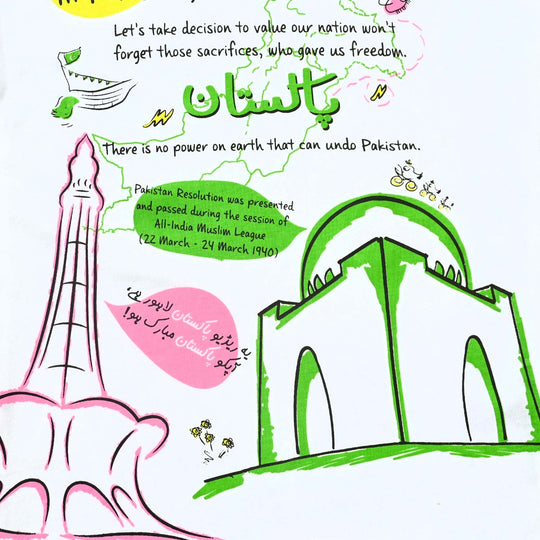 Let's take decision to value our nation won't
forget those sacrifices, who gave us freedom.
پاکستان
There is no power on earth that can undo Pakistan.
Pakistan Resolution was presented
and passed during the session of
All-India Muslim League
(22 March - 24 March 1940)
یہ ریڈیو پاکستان لاہور ہے،
آپکو پاکستان مبارک ہو!